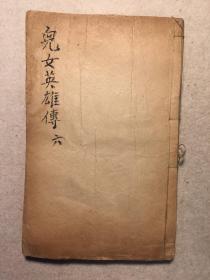 兒女英雄傳六